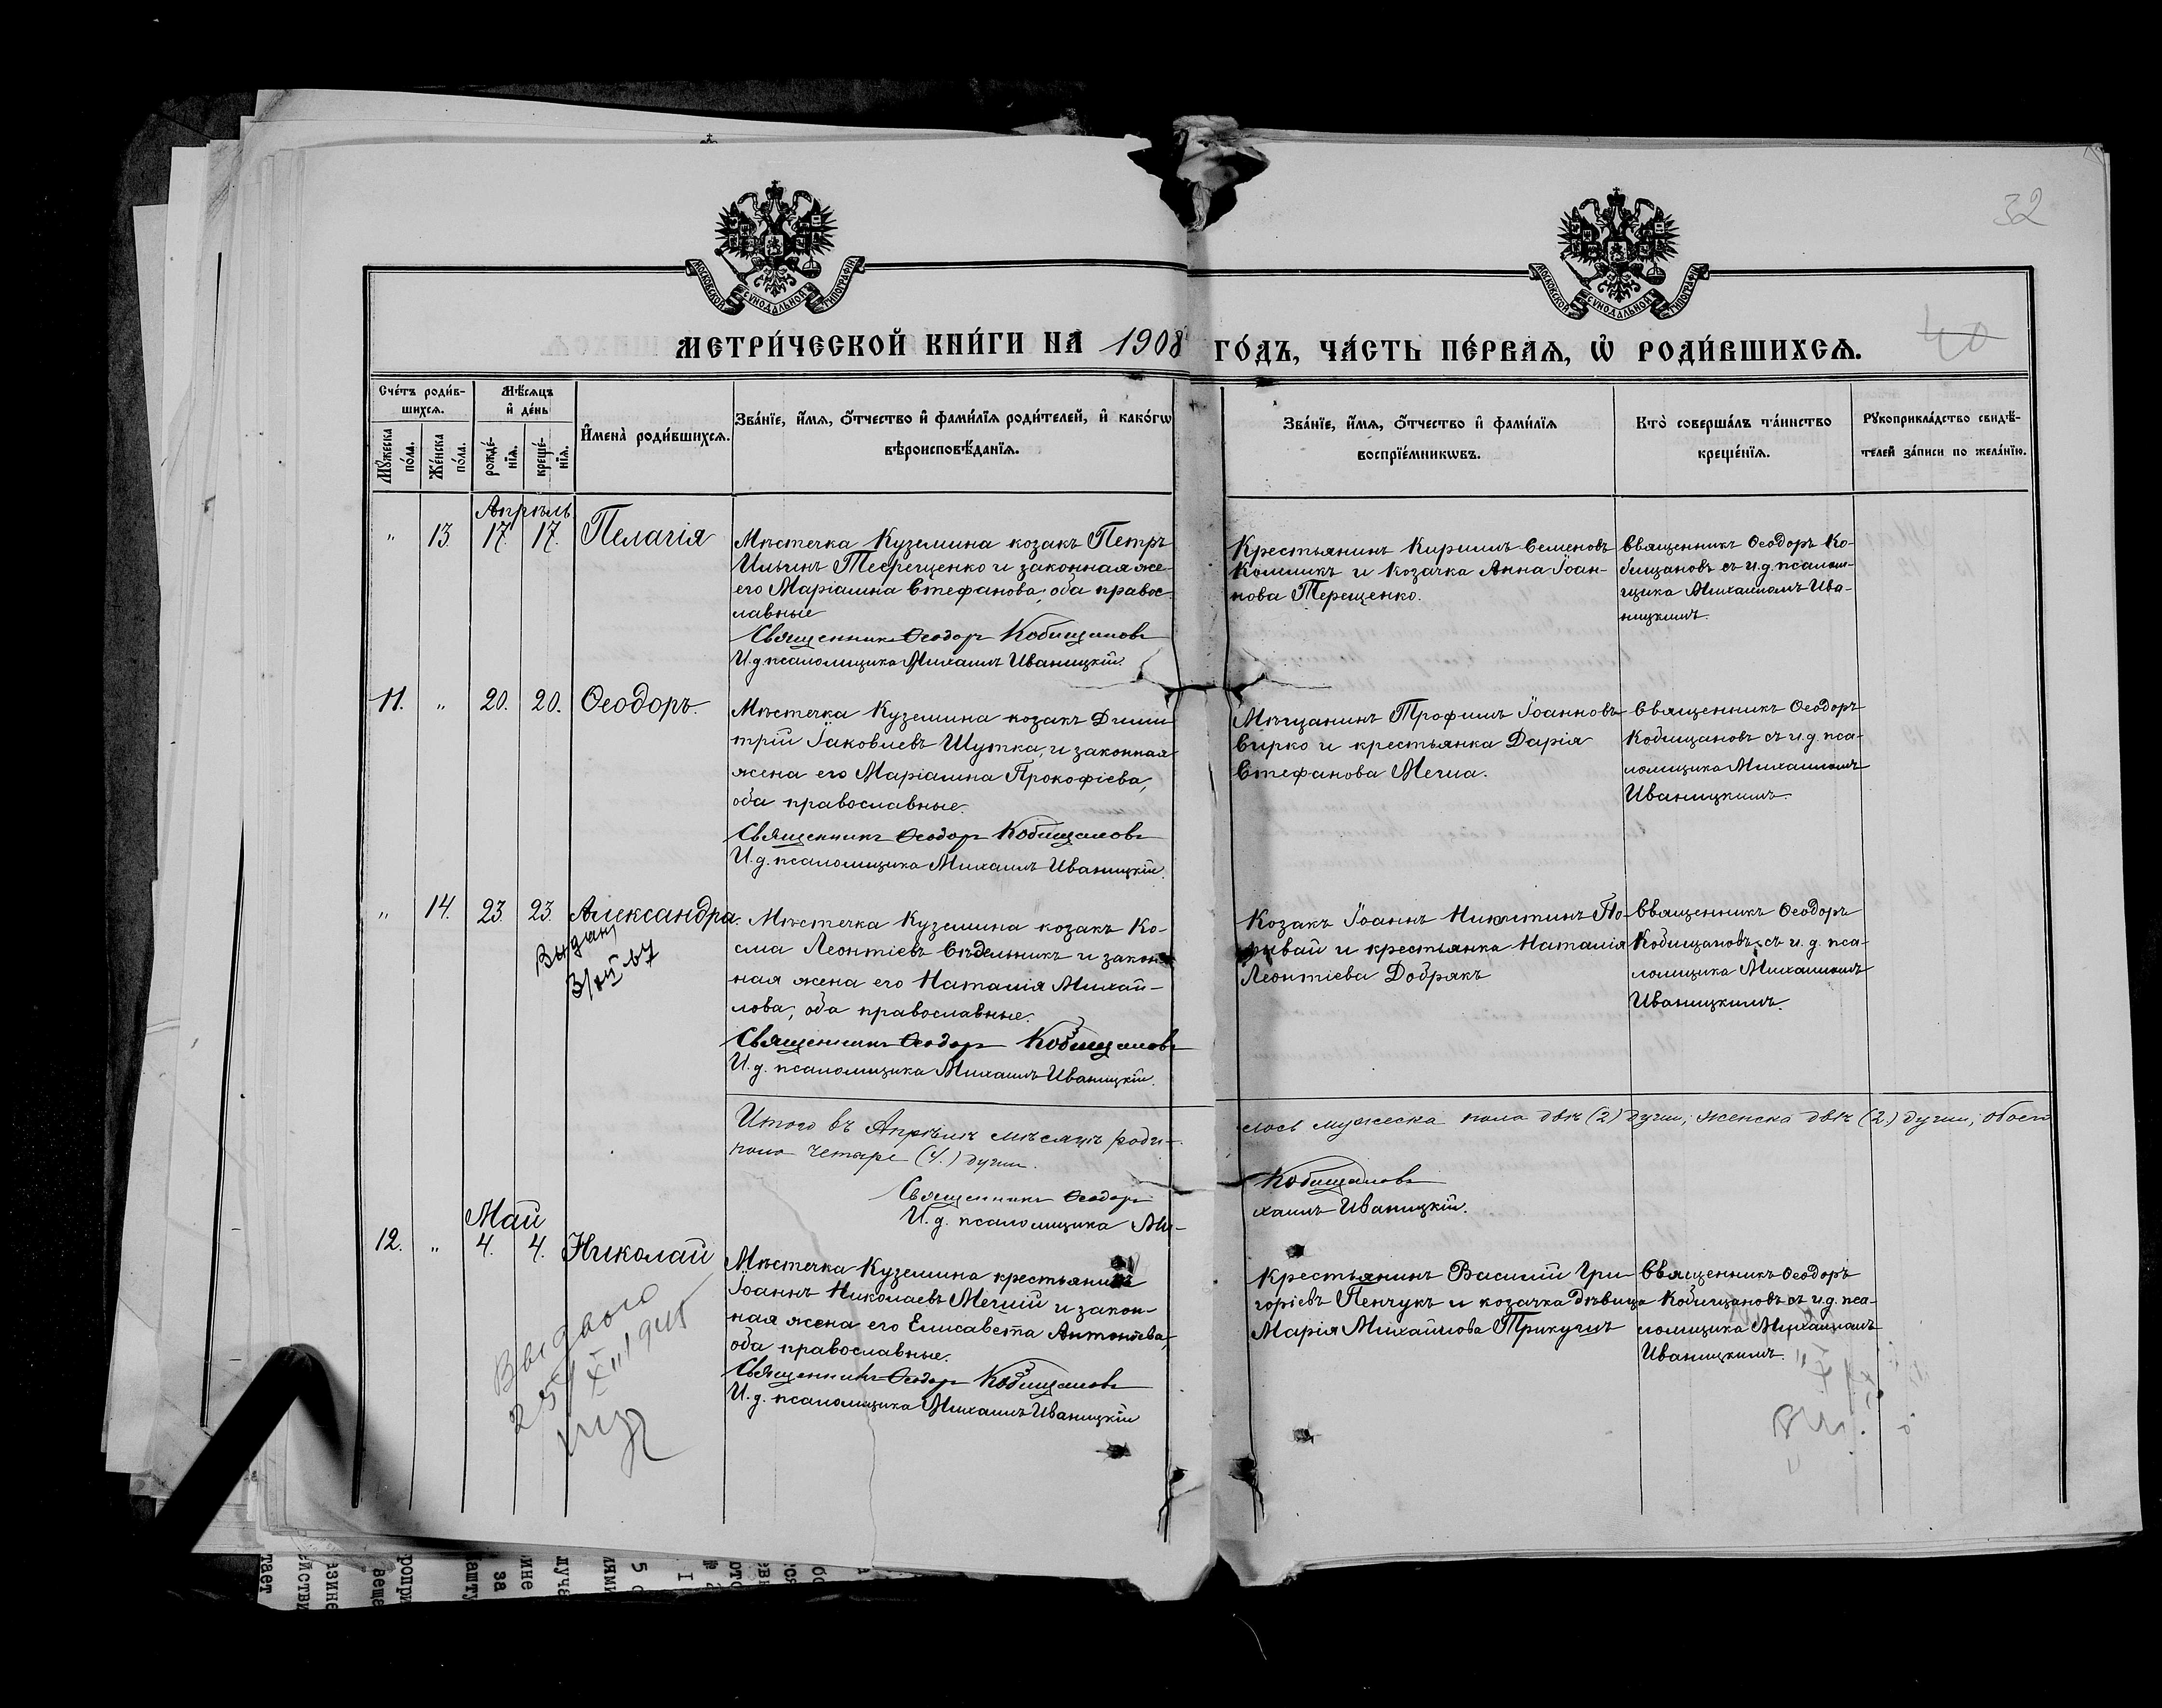 32
МОСКОВСКОЙ СѴНОДАЛЬНОЙ ТИПОГРАФІИ
МОСКОВСКОЙ СѴНОДАЛЬНОЙ ТИПОГРАФІИ
МЕТРИ́ЧЕСКОЙ КНИ́ГИ НА 1908 ГО́ДЪ, ЧА́СТЬ ПЕ́РВАѦ, Ѡ҆ РОДИ́ВШИХСѦ.
40
Сче́тъ роди́в-
шихсѧ.
Мѣ́сѧцъ
и҆ де́нь
Мꙋ́жеска по́ла.
Же́нска по́ла.
рожде́-
нїѧ.
креще́-
нїѧ.
И҆мена̀ роди́вшихсѧ.
Зва́нїе, и҆́мѧ, ѻ҆́тчество и҆ фами́лїѧ роди́телей, и҆ како́гѡ
вѣроисповѣ́данїѧ.
Зва́нїе, и҆́мѧ, ѻ҆́тчество и҆ фами́лїѧ
воспрїе́мникѡвъ.
Кто̀ соверша́лъ та́инство
креще́нїѧ.
Рꙋкоприкла́дство свидѣ́-
телей за́писи по жела́нїю.
Апрѣль
" 13. 17. 17. Пелагія
Мѣстечка Куземина козакъ Петръ
Ильинъ Терещенко и законная же-
его Маріамна Стефанова, оба правос-
лавные
Священникъ Ѳеодоръ Кобищановъ
И.д. псаломщика Михаилъ Иваницкій.
Крестьянинъ Кириллъ Семеновъ
и козачка Анна Іоан-
нова Терещенко.
Священникъ Ѳеодоръ Ко-
бищановъ съ и.д. псалом-
щика Михаиломъ Ива-
ницкимъ.
11. " 20. 20. Ѳеодоръ.
Мѣстечка Куземина козакъ Дими-
трій Іаковлевъ Шутка, и законная
жена его Маріамна Прокофіева,
оба православные.
Священникъ Ѳеодоръ Кобищановъ
И.д. псаломщика Михаилъ Иваницкій.
Мѣщанинъ Трофимъ Іоанновъ
Сирко и крестьянка Дарія
Стефанова
Священникъ Ѳеодоръ
Кобищановъ съ и.д. пса-
ломщика Михаиломъ
Иваницкимъ.
" 14. 23. 23. Александра.
Мѣстечка Куземина козакъ Ко-
сма Леонтіевъ Сѣдельникъ и закон-
ная жена его Наталія Михай-
лова, оба православные.
Священникъ Ѳеодоръ Кобищановъ
И.д. псаломщика Михаилъ Иваницкій.
Козакъ Іоаннъ Никитинъ
и крестьянка Наталія
Леонтіева Добрякъ
Священникъ Ѳеодоръ
Кобищановъ съ и.д. пса-
ломщика Михаиломъ
Иваницкимъ.
Итого въ Апрѣлѣ мѣсяцѣ роди-
лось мужеска пола двѣ (2) души, женска двѣ (2.) души, обоего
пола четыре (4.) души.
Священникъ Ѳеодоръ Кобищановъ
И.д. псаломщика Михаилъ Иваницкій.
Май
12. " 4. 4. Николай
Выдано
25/XII 1945
Мѣстечка Куземина крестьянинъ
Іоаннъ Николаевъ и закон-
ная жена его Елисавета Антоніева,
оба православные.
Священникъ Ѳеодоръ Кобищановъ
И.д. псаломщика Михаилъ Иваницкій
Крестьянинъ Василій Гри-
горіевъ Пенчукъ и козачка дѣвица
Марія Михайлова
Священникъ Ѳеодоръ
Кобищановъ съ и.д. пса-
ломщика Михаиломъ
Иваницкимъ.